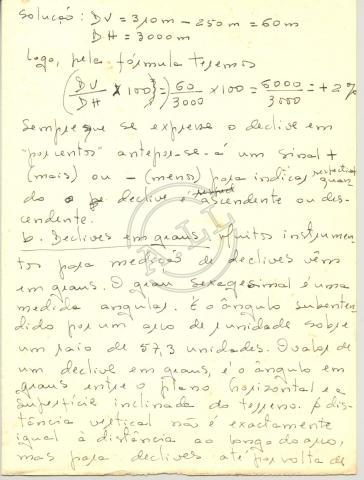 Solução: DV = 310 m - 250 m = 60 m
DH = 3000 m
Logo, pela fórmula teremos
(DV/DH x 100) = 60/3000 x 100 = 6000/3000 = + 2%
Sempre que se expressa o declive em
"porcentos" antepor-se-á um sinal +
(mais) ou - (menos) para indicar respectivamente quan
do o declive é ascendente ou des-
cendente.
b. Declives em graus. Muitos instrumen-
tos para medição de declives vêm
em graus. O grau sexagesimal é uma
medida angular. É o ângulo subenten-
dido por um arco de 1 unidade sobre
um raio de 57,3 unidades. O valor de
um declive em graus, é o ângulo em
graus entre o plano horizontal e a
superfície inclinada do terreno. A dis-
tância vertical não é exactamente
igual à distância ao longo do arco,
mas para declives até por volta de